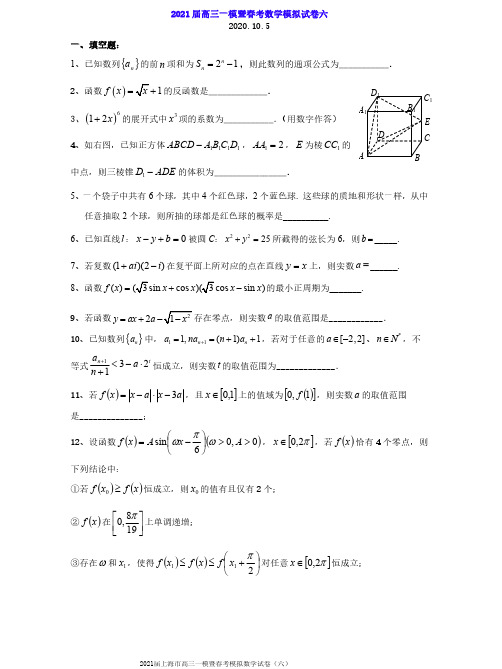 2021届高三一模暨春考数学模拟试卷六
2020.10.5
一、填空题:
1、已知数列{aₙ}的前n项和为Sₙ=2ⁿ-1,则此数列的通项公式为___________.
2、函数f(x)=√x+1的反函数是_____________.
3、(1+2x)⁶的展开式中x³项的系数为___________.(用数字作答)
4、如右图,已知正方体ABCD-A₁B₁C₁D₁,AA₁=2,E为棱CC₁的
中点,则三棱锥D₁-ADE的体积为________________.
D₁ C₁ A₁ B₁ E D C A B
5、一个袋子中共有6个球,其中4个红色球,2个蓝色球.这些球的质地和形状一样,从中
任意抽取2个球,则所抽的球都是红色球的概率是__________.
6、已知直线l:x-y+b=0被圆C:x²+y²=25所截得的弦长为6,则b=_____.
7、若复数(1+ai)(2-i)在复平面上所对应的点在直线y=x上,则实数a=______.
8、函数f(x)=(√3sin x+cos x)(√3cos x-sin x)的最小正周期为_______.
9、若函数y=ax+2a-√1-x²存在零点,则实数a的取值范围是____________.
10、已知数列{aₙ}中,a₁=1,naₙ₊₁=(n+1)aₙ+1,若对于任意的a∈[-2,2]、n∈N*,不
等式aₙ₊₁/(n+1)<3-a·2ᵗ恒成立,则实数t的取值范围为_____________.
11、若f(x)=|x-a|·|x-3a|,且x∈[0,1]上的值域为[0,f(1)],则实数a的取值范围
是______________;
12、设函数f(x)=A sin(ωx-π/6)(ω>0,A>0),x∈[0,2π],若f(x)恰有4个零点,则
下列结论中:
①若f(x₀)≥f(x)恒成立,则x₀的值有且仅有2个;
②f(x)在[0,8π/19]上单调递增;
③存在ω和x₁,使得f(x₁)≤f(x)≤f(x₁+π/2)对任意x∈[0,2π]恒成立;
2021届上海市高三一模暨春考模拟数学试卷(六)